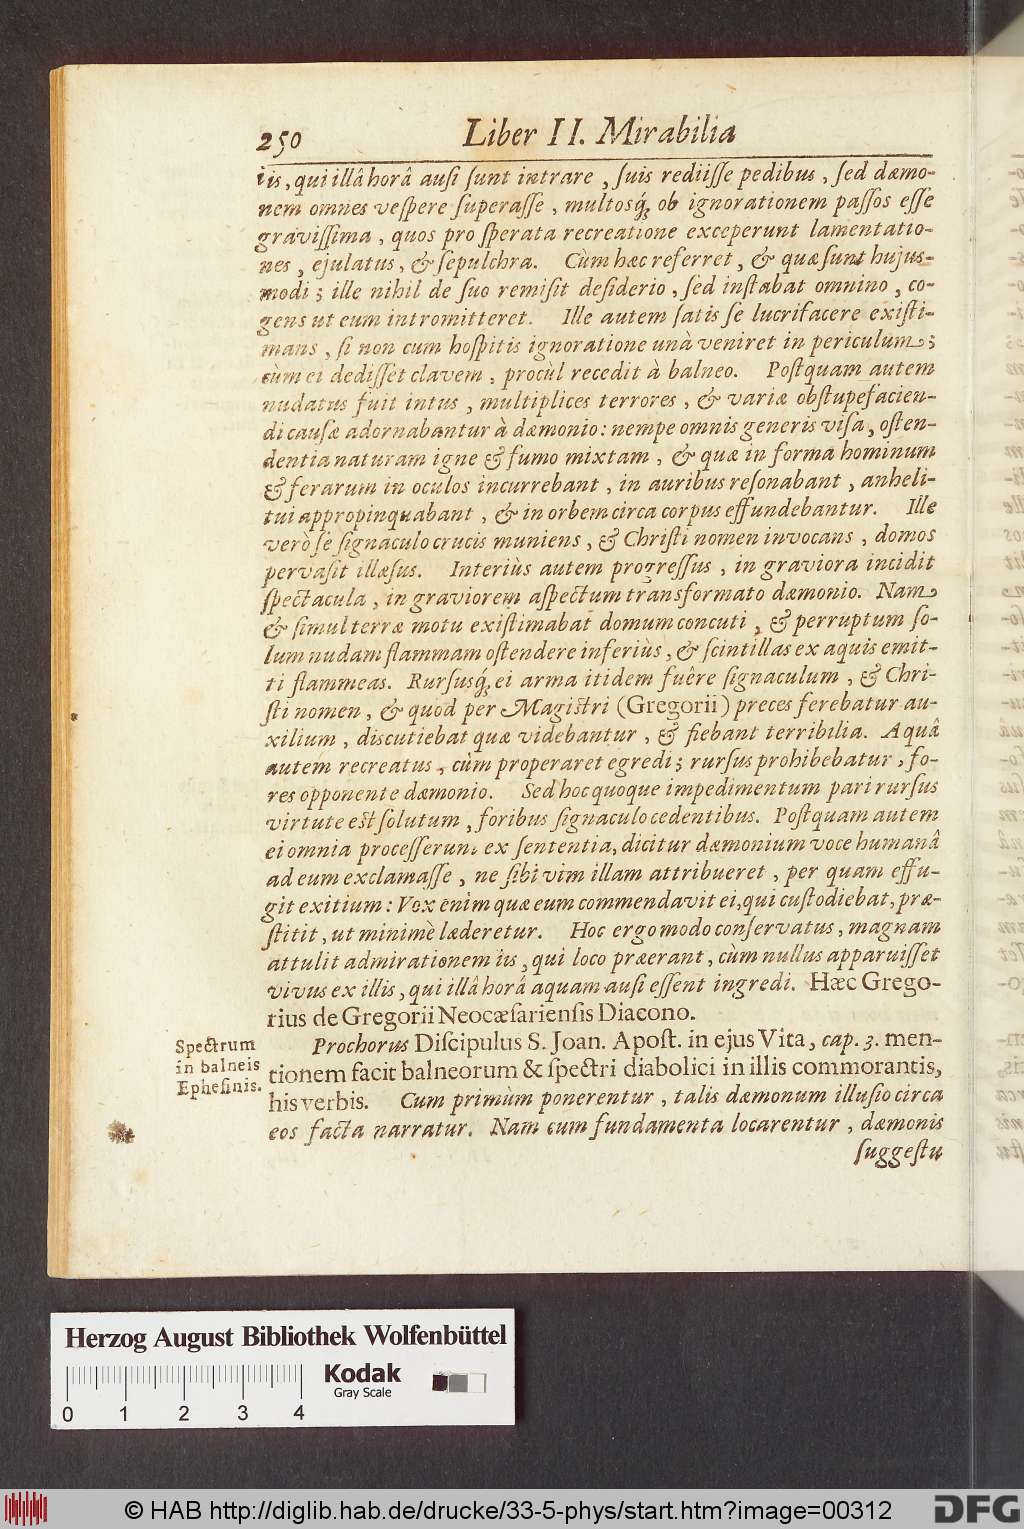 250 Liber II. Mirabilia
iis, qui illâ horâ ausi sunt intrare, suis rediisse pedibus, sed dæmo-
nem omnes vespere superasse, multosq́; ob ignorationem passos esse
gravissima, quos pro sperata recreatione exceperunt lamentatio-
nes, ejulatus, & sepulchra. Cùm hæc referret, & quæ sunt hujus-
modi; ille nihil de suo remisit desiderio, sed instabat omnino, co-
gens ut eum intromitteret. Ille autem satis se lucrifacere existi-
mans, si non cum hospitis ignoratione unà veniret in periculum;
cùm ei dedisset clavem, procùl recedit à balneo. Postquam autem
nudatus fuit intus, multiplices terrores, & variæ obstupefacien-
di causæ adornabantur à dæmonio: nempe omnis generis visa, osten-
dentia naturam igne & fumo mixtam, & quæ in forma hominum
& ferarum in oculos incurrebant, in auribus resonabant, anheli-
tui appropinquabant, & in orbem circa corpus effundebantur. Ille
verò se signaculo crucis muniens, & Christi nomen invocans, domos
pervasit illæsus. Interiùs autem progressus, in graviora incidit
spectacula, in graviorem aspectum transformato dæmonio. Nam
& simul terræ motu existimabat domum concuti, & perruptum so-
lum nudam flammam ostendere inferiùs, & scintillas ex aquis emit-
ti flammeas. Rursusq́; ei arma itidem fuêre signaculum, & Chri-
sti nomen, & quod per Magistri (Gregorii) preces ferebatur au-
xilium, discutiebat quæ videbantur, & fiebant terribilia. Aquâ
autem recreatus, cùm properaret egredi; rursus prohibebatur, fo-
res opponente dæmonio. Sed hoc quoque impedimentum pari rursus
virtute est solutum, foribus signaculo cedentibus. Postquam autem
ei omnia processerunt ex sententia, dicitur dæmonium voce humanâ
ad eum exclamasse, ne sibi vim illam attribueret, per quam effu-
git exitium: Vox enim quæ eum commendavit ei, qui custodiebat, præ-
stitit, ut minimè læderetur. Hoc ergo modo conservatus, magnam
attulit admirationem iis, qui loco præerant, cùm nullus apparuisset
vivus ex illis, qui illâ horâ aquam ausi essent ingredi. Hæc Grego-
rius de Gregorii Neocæsariensis Diacono.
Spectrum
in balneis
Ephesinis.
Prochorus Discipulus S. Joan. Apost. in ejus Vita, cap. 3. men-
tionem facit balneorum & spectri diabolici in illis commorantis,
his verbis. Cum primùm ponerentur, talis dæmonum illusio circa
eos facta narratur. Nam cum fundamenta locarentur, dæmonis
suggestu
Herzog August Bibliothek Wolfenbüttel
Kodak
Gray Scale
0 1 2 3 4
© HAB http://diglib.hab.de/drucke/33-5-phys/start.htm?image=00312
DFG